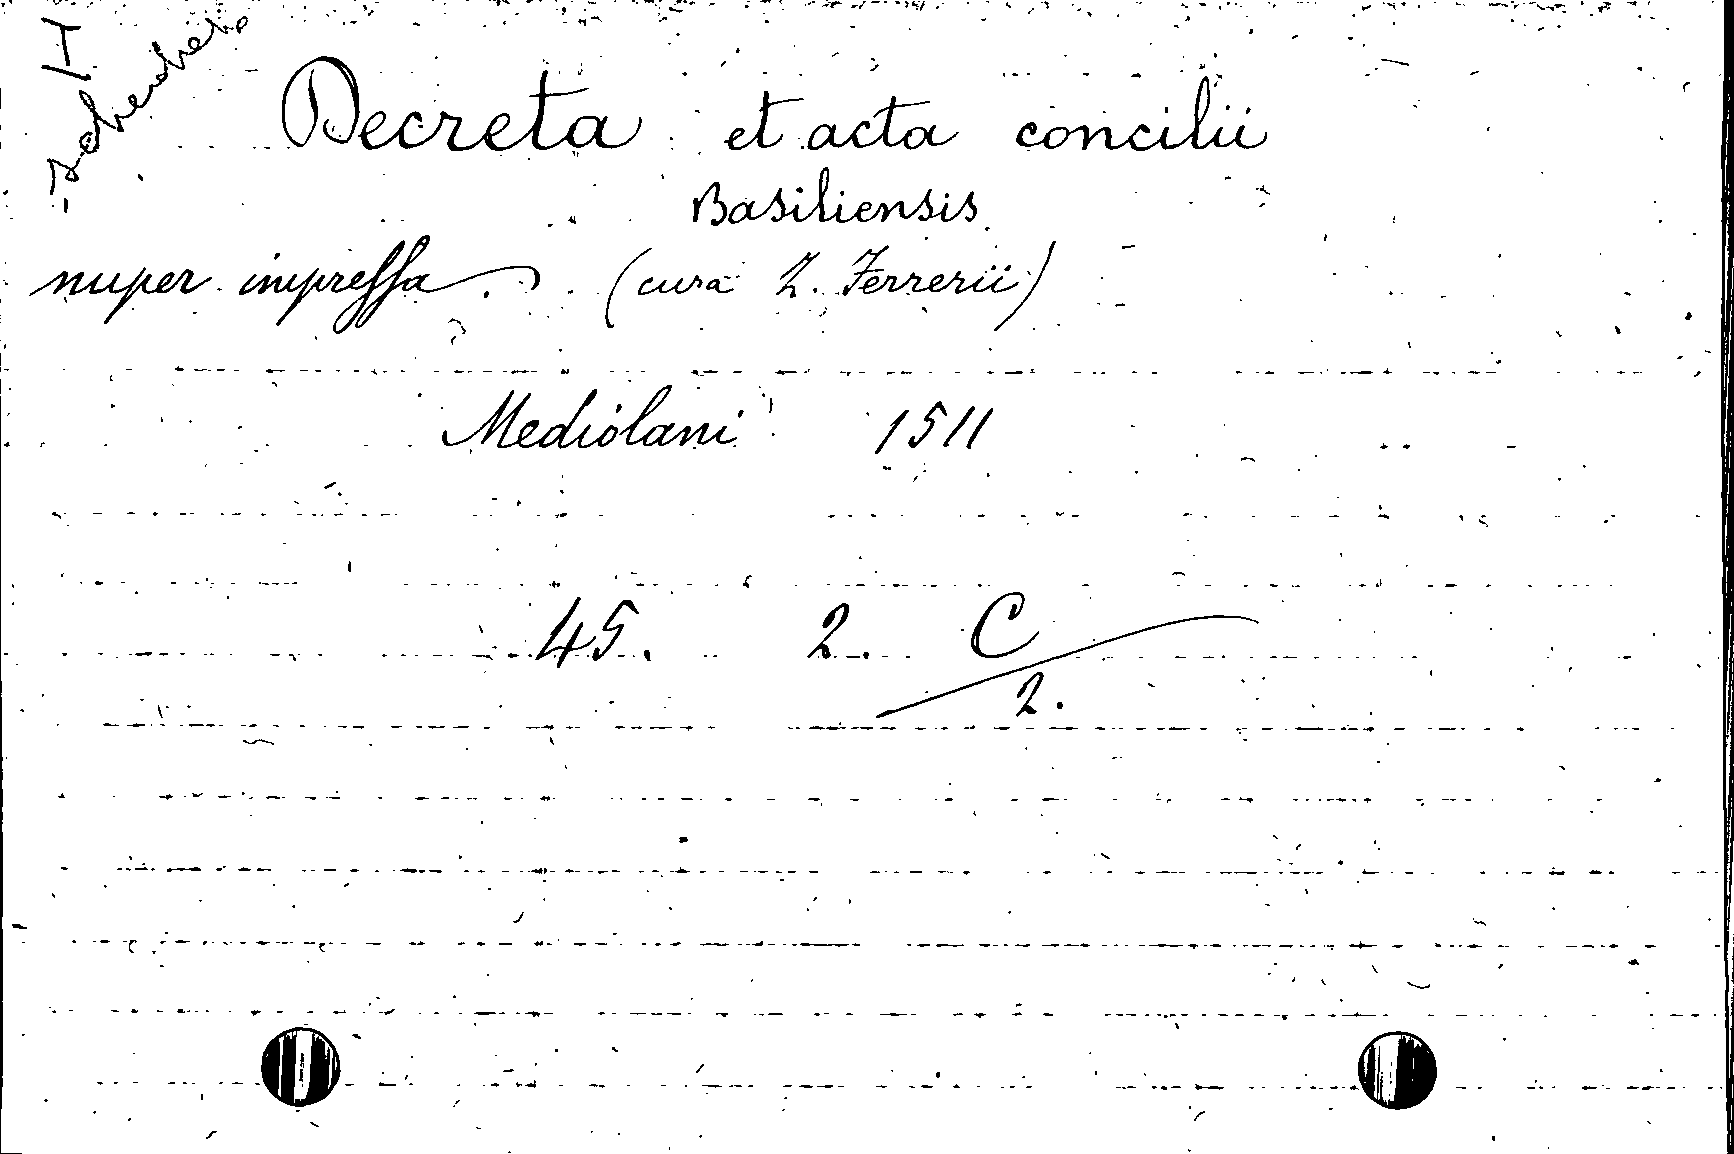 H
Decreta et acta concilii
Basiliensis
nuper impressa. (cura Z. Ferrerii)
Mediolani 1511
45. 2. C
2.